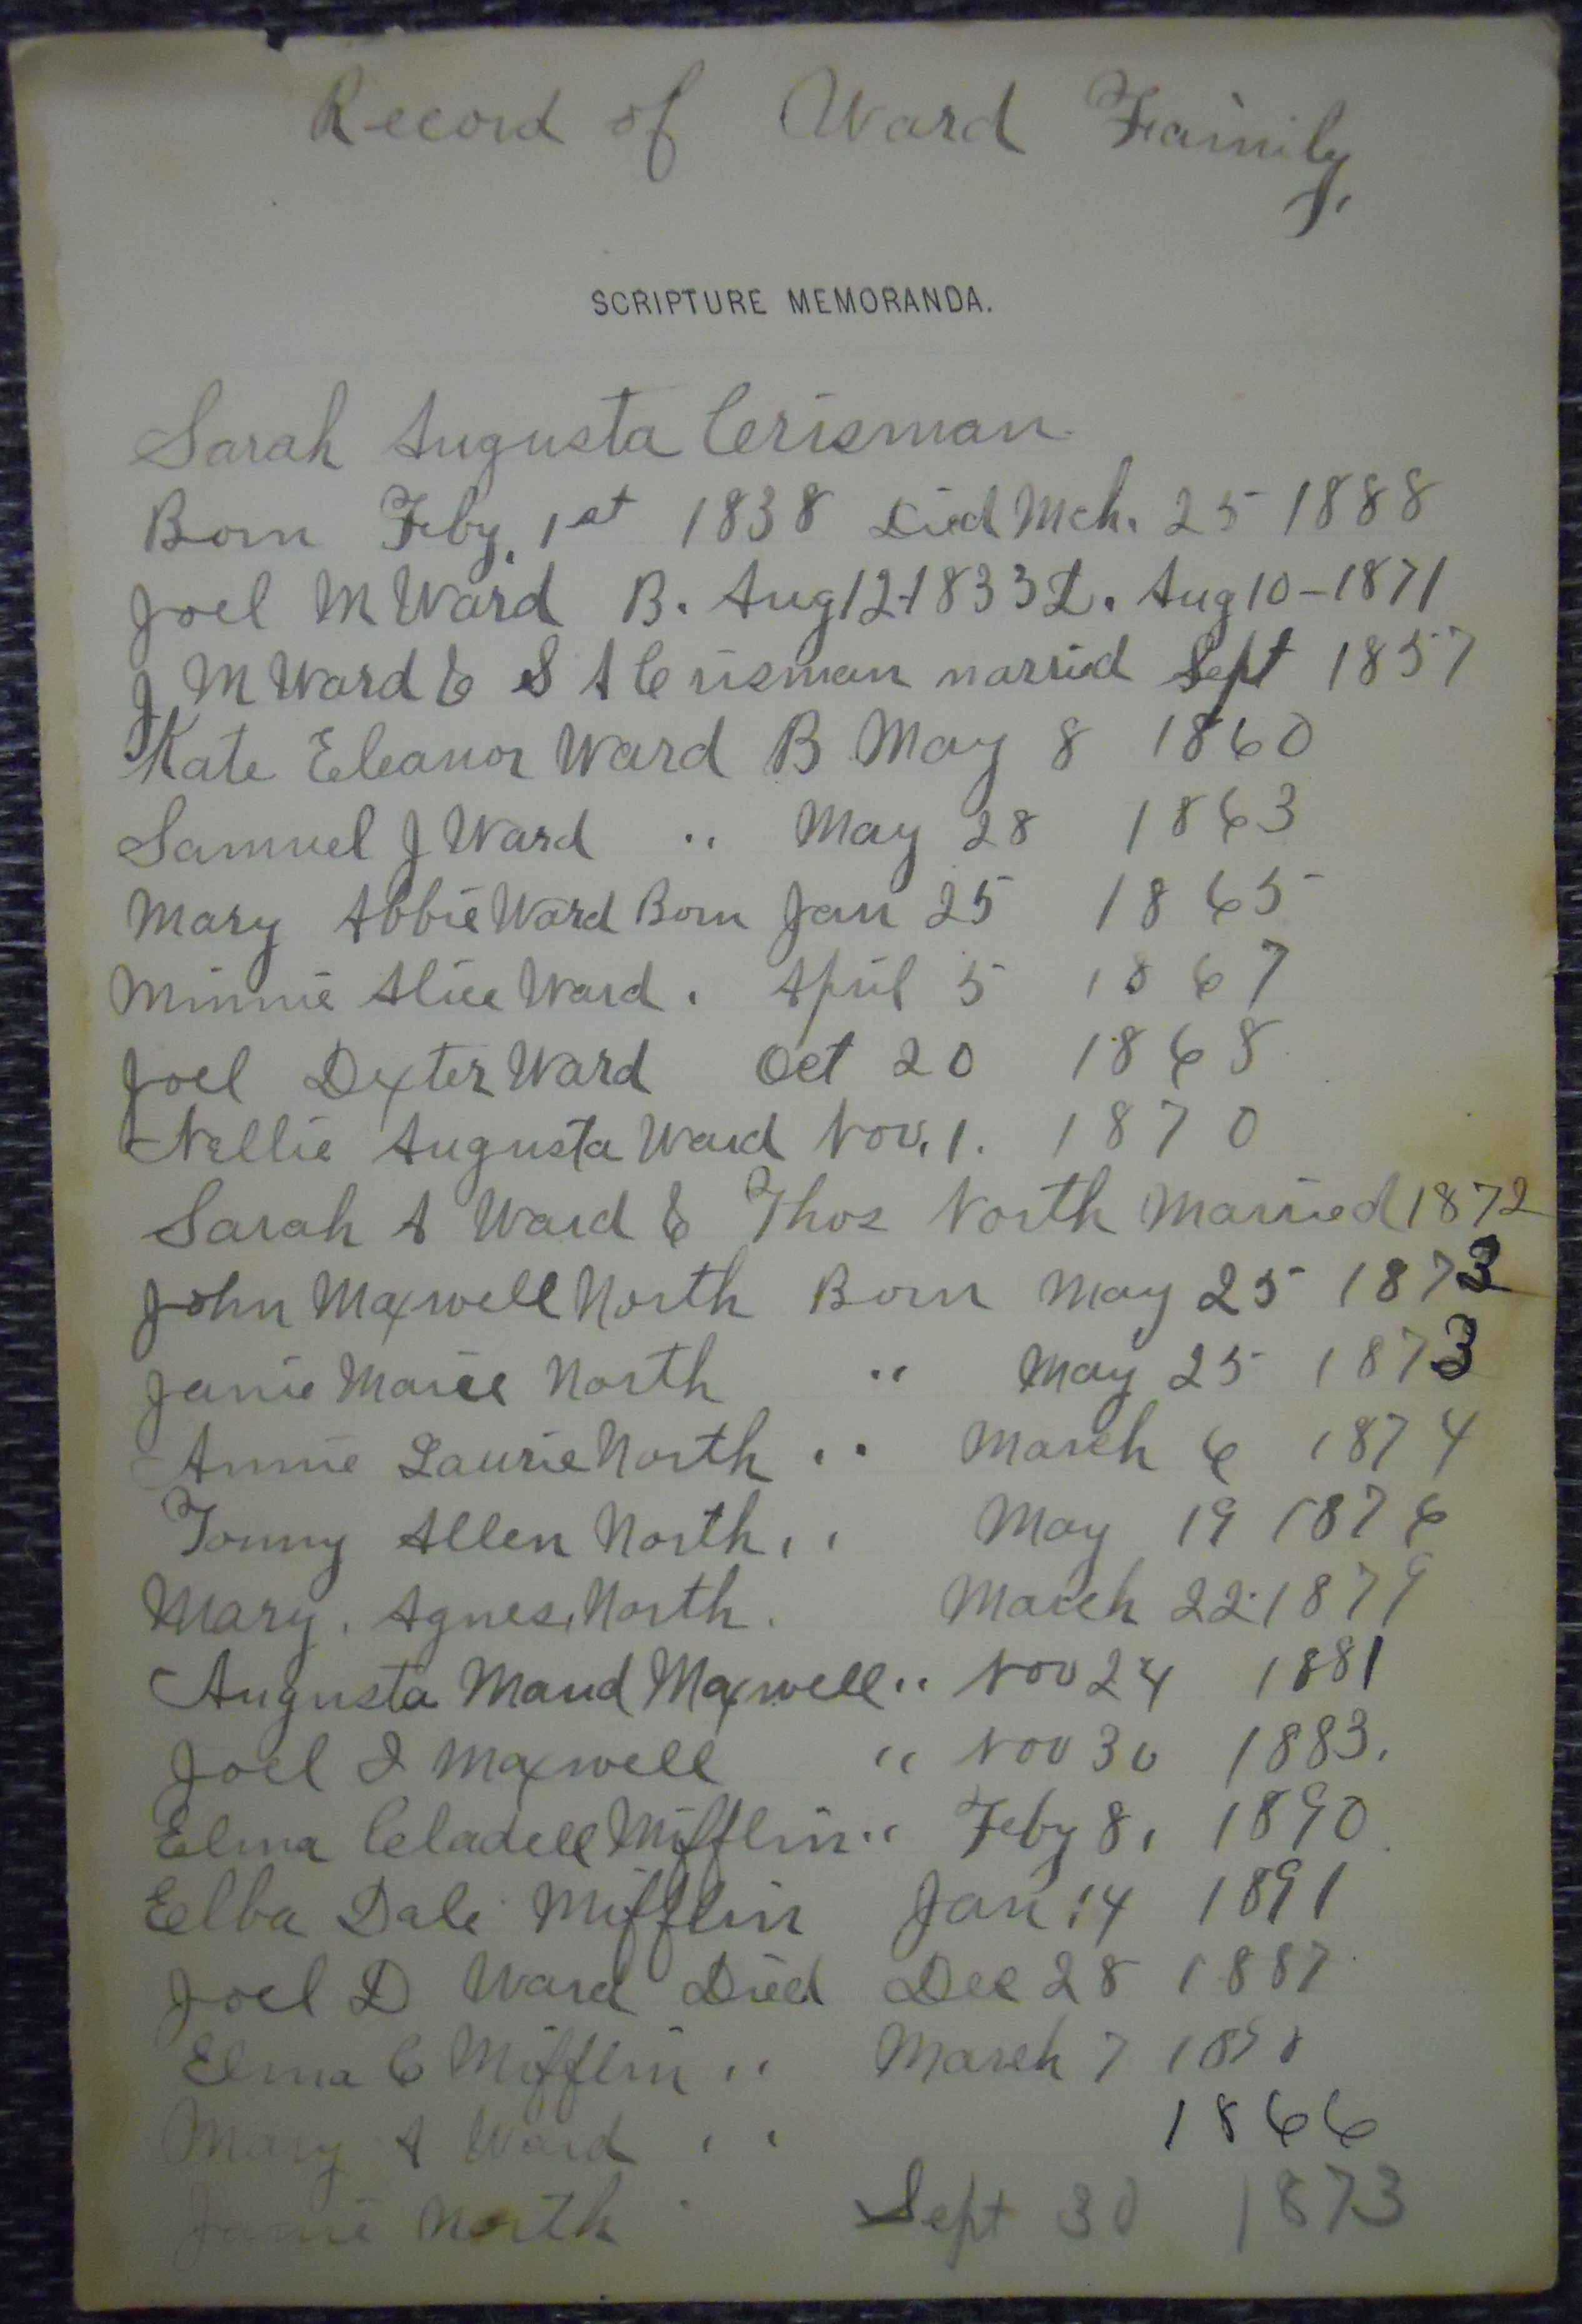 Record of Ward Family,
SCRIPTURE MEMORANDA.
Sarah Augusta Crisman
Born Feby. 1st 1838 Died Mch. 25 1888
Joel M Ward B. Aug 12-1833 D. Aug 10-1871
J M Ward & S A Crisman married Sept 1857
Kate Eleanor Ward B May 8 1860
Samuel J Ward " May 28 1863
Mary Abbie Ward Born Jan 25 1865
Minnie Alice Ward . April 5 1867
Joel Dexter Ward Oct 20 1868
Nellie Augusta Ward Nov. 1. 1870
Sarah A Ward & Thos North Married 1872
John Maxwell North Born May 25 1873
Janie Marie North " May 25 1873
Annie Laurie North " March 6 1874
Tommy Allen North " May 19 1876
Mary. Agnes North. March 22 1879
Augusta Maud Maxwell " Nov 24 1881
Joel Maxwell " Nov 30 1883.
Elma Cladell Mifflin " Feby 8, 1890
Elba Dale Mifflin Jan 14 1891
Joel D Ward Died Dec 28 1887
Elma C Mifflin " March 7
Mary A Ward " 1866
Janie North " Sept 30 1873